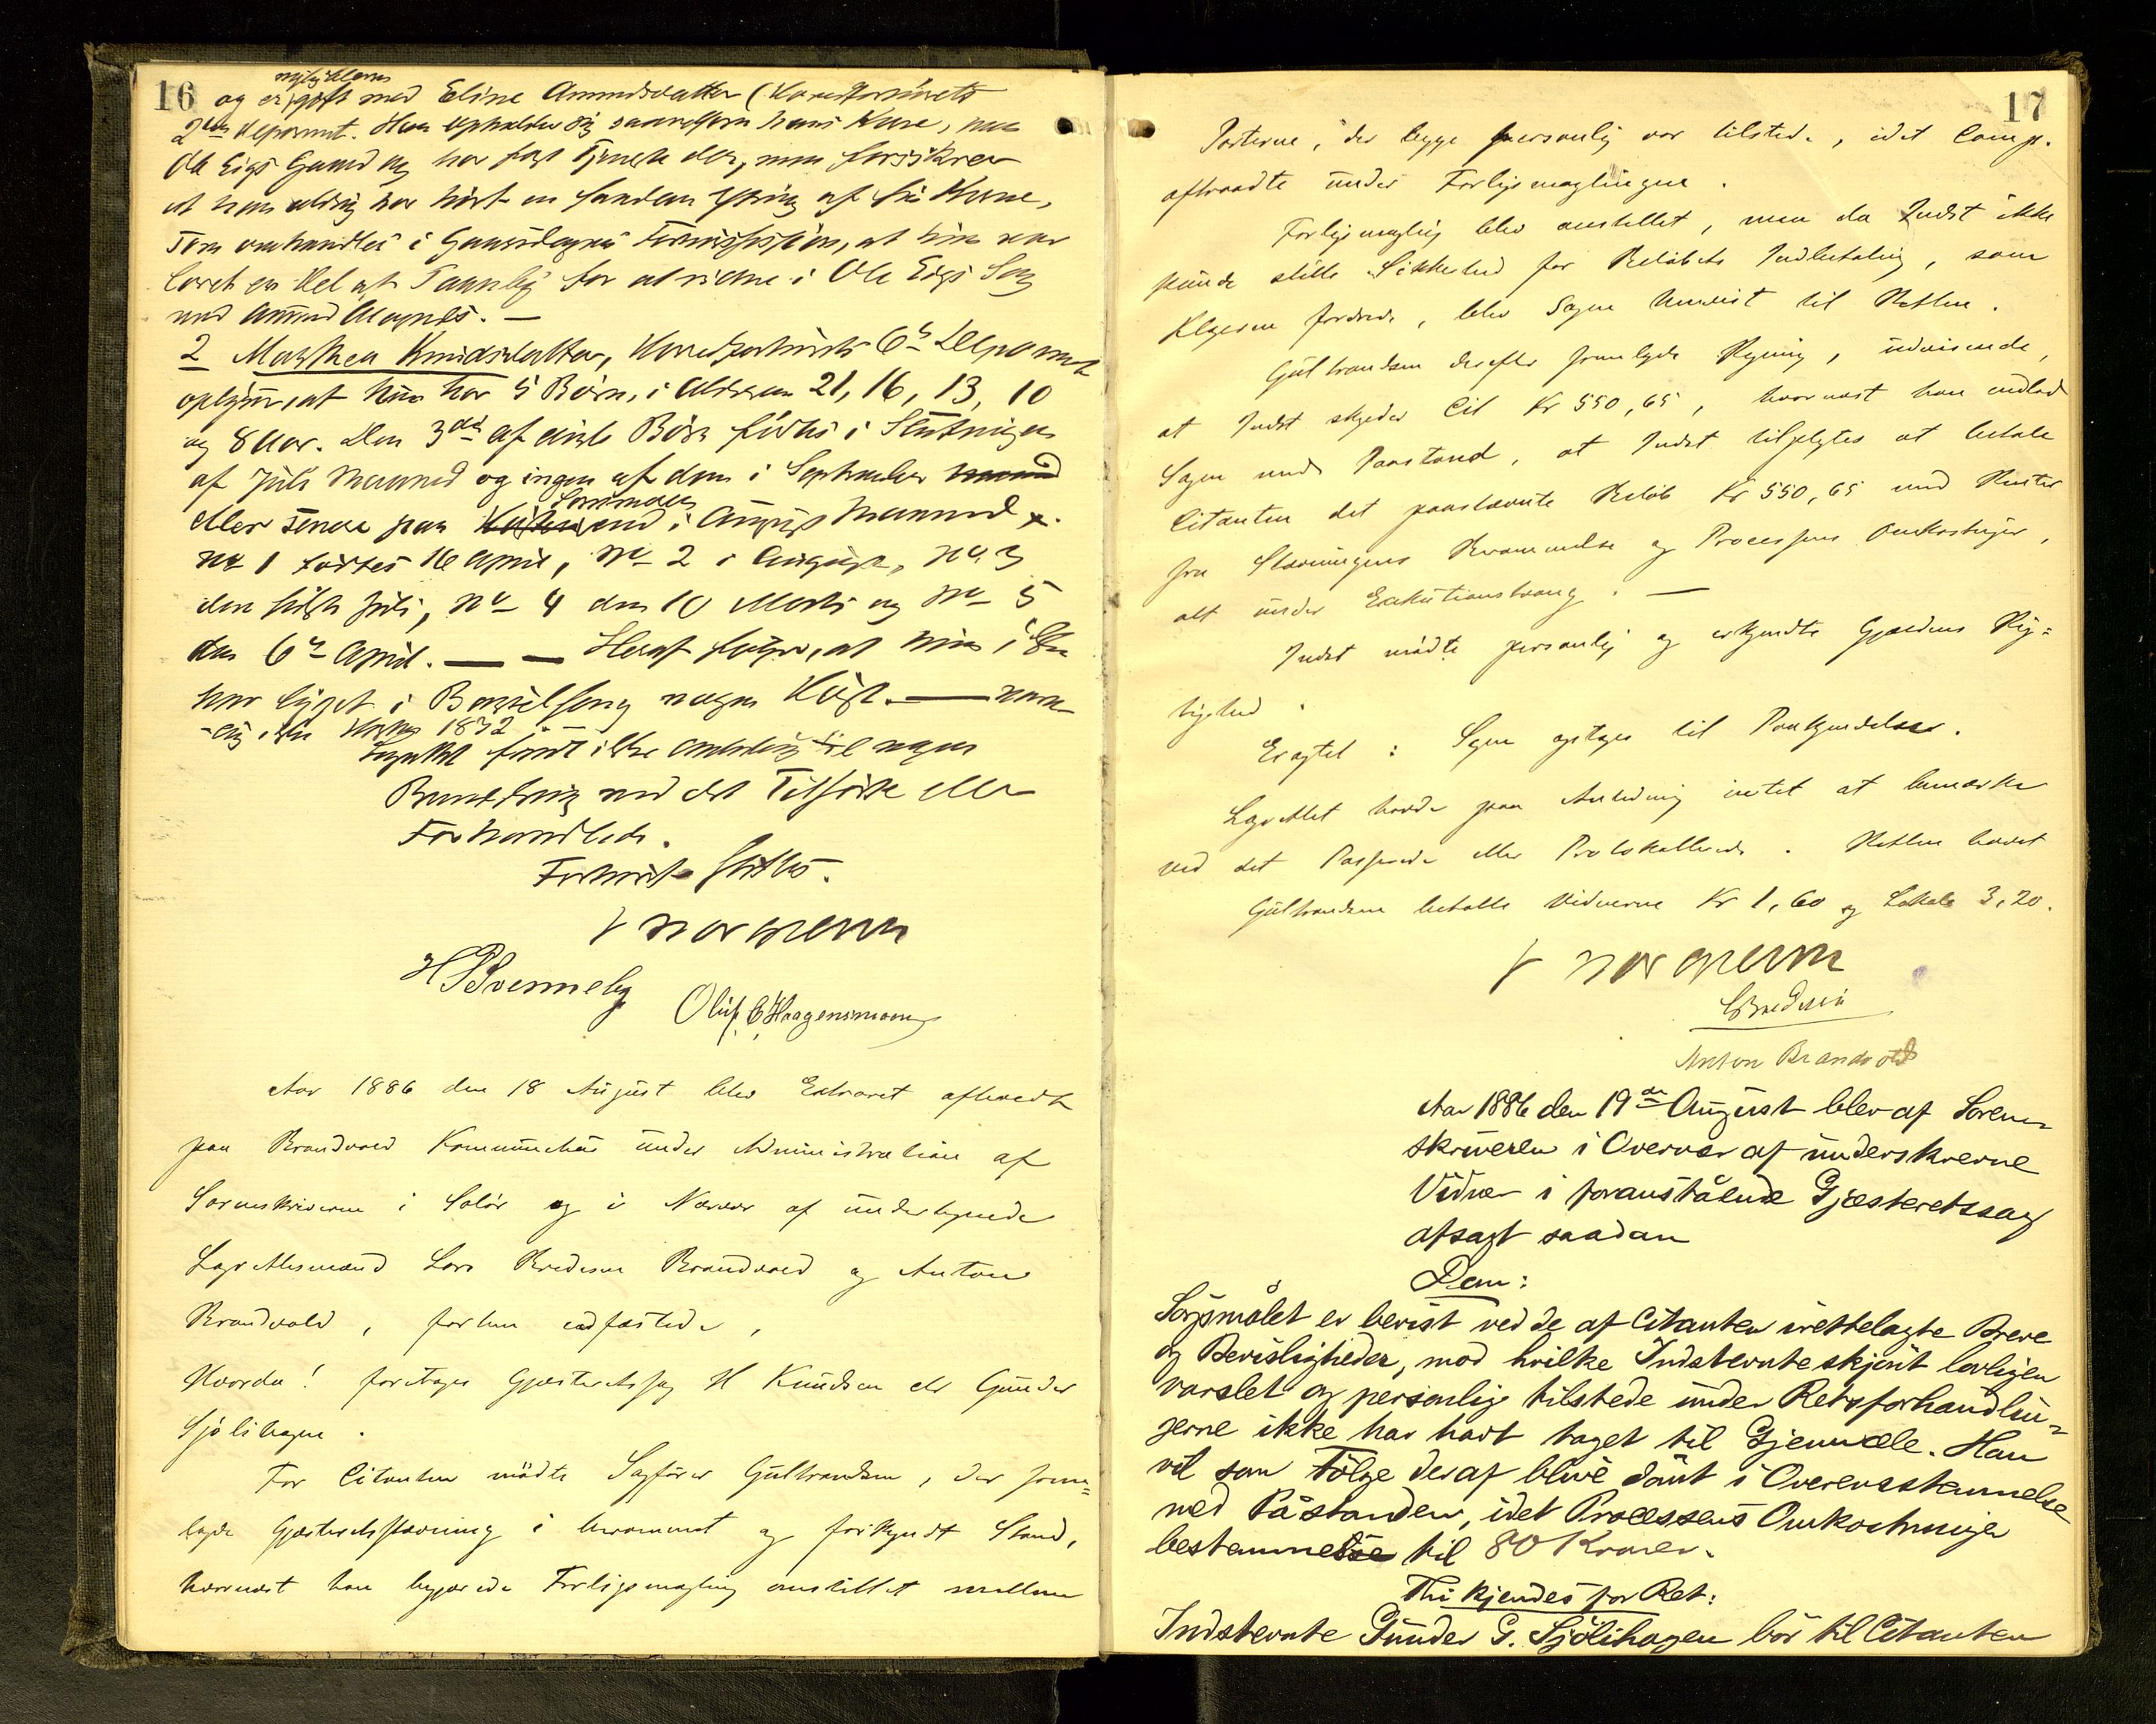 16
mylig
og er gift med Eline Amundsdatter (Hovedforhørets
2den Deponent. Han opholder sig saavelsom hans Kone, paa
Ole Eigs Gaard og har fast Tjeneste der, men forsikrer
at han aldrig har hørt en saadan Ytring af sin Kone,
som omhandlet i Gaarsdagens at hun var
lovet en Del at for at vidne i Ole Eigs Sag
med Amund Magnæs. —
2 Mathea Knudsdatter, Hovedforhørets 6te Deponent
oplyser, at hun har 5 Børn, i Alderen 21, 16, 13, 10
og 8 Aar. Den 3die af disse Børn fødtes i Slutningen
af Juli Maaned og ingen af dem i September
eller senere paa end i August Maaned.
No 1 fødtes 16 April, No 2 i August, No 3
den sidste Juli, No 4 den 10 Marts og No 5
den 6te April. — — Heraf følger, at hun ikke
har ligget i Barselseng nogen Høst. — navn-
lig ikke Høsten 1872. —
Lagrettet fandt ikke Anledning til nogen
Bemærkning ved det Tilførte eller
Forhandlede.
Forhøret sluttet.
H P Svenneby Oluf C Haagensmoen
Aar 1886 den 18 August blev Extraret afholdt
paa Brandvold Kommunehus under Administration af
Sorenskriveren i Solør og i Nærvær af undertegnede
Lagrettesmænd Lars Bredesen Brandvold og Anton
Brandvold, forhen edfæstede,
Hvorda! foretages Gjæsteretssag H Knudsen ctr Gunder
Sjølihagen.
For Citanten mødte Sagfører Gulbrandsen, der frem-
lagde Gjæsteretsstævning i berammet og forkyndt Stand,
hvornæst han begjærede Forligsmægling anstillet mellem
17
Parterne, der begge personlig var tilstede, idet Comp.
aftraadte under Forligsmæglingen.
Forligsmægling blev anstillet, men da Indst ikke
kunde stille Sikkerhed for Beløbets Indbetaling, som
Klageren fordrede, blev Sagen henvist til Retten.
Gulbrandsen derefter fremlagde Regning, udvisende,
at Indst skylder Cit Kr 550,65, hvornæst han indlod
Sagen med Paastand, at Indst tilpligtes at betale
Citanten det paastævnte Beløb Kr 550,65 med Renter
fra Stævningens Berammelse og Processens Omkostninger,
alt under Exekutionstvang. —
Indst mødte personlig og erkjendte Gjældens Rig-
tighed.
Eragtet: Sagen optages til Paakjendelse.
Lagrettet havde paa Anledning intet at bemærke
ved det Passerede eller Protokollerede. Retten hævet
Gulbrandsen betalte Vidnerne Kr 1,60 og Lokale 3,20.
L Bredesen
Anton Brandvold
Aar 1886 den 19de August blev af Soren-
skriveren i Overvær af underskrevne
Vidner i foranstående Gjæsteretssag
afsagt saadan
Dom:
Søgsmålet er bevist ved de af Citanten irettelagte Breve
og Bevisligheder, mod hvilke Indstevnte skjønt lovligen
varslet og personlig tilstede under Retsforhandlin-
gerne ikke har havt noget til Gjenmæle. Han
vil som Følge deraf blive dømt i Overensstemmelse
med Påstanden, idet Processens Omkostninger
bestemmes til 80 Kroner.
Thi kjendes for Ret:
Indstevnte Gunder G. Sjølihagen bør til Citanten